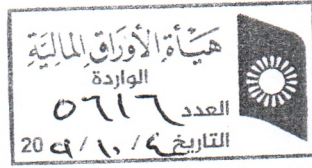 هيأة الأوراق المالية
الواردة
العدد ٥٦١٦
التاريخ ٤ / ١٠ / 20